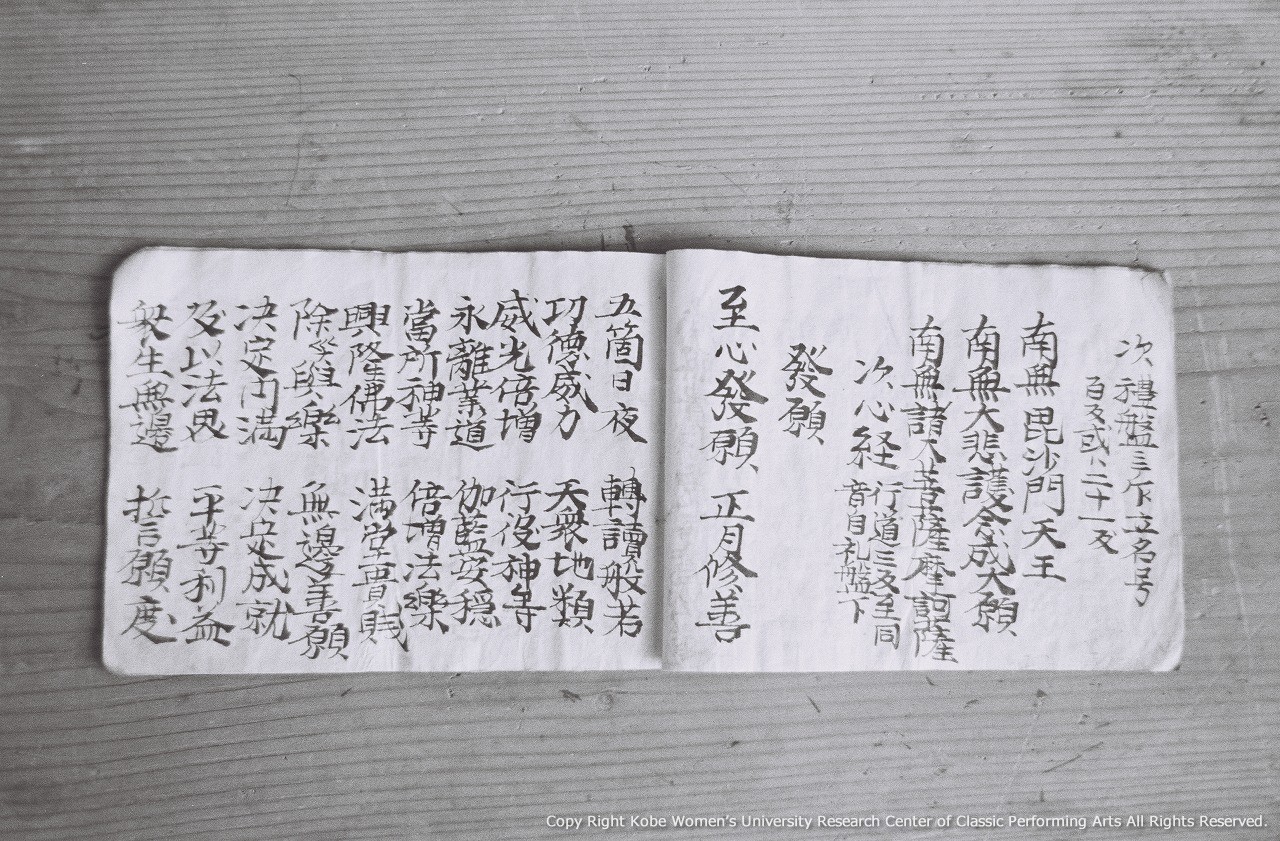 次禮盤三作立名号
百反或ハ二十一反
南無毘沙門天王
南無大悲護念成大願
南無諸大菩薩摩訶薩
次心経 行道三反至同
音自礼盤下
發願
至心發願 正月修善
五箇日夜 轉讀般若
功德威力 天衆地類
威光倍增 行役神等
永離業道 伽藍安穏
當所神等 倍增法樂
興隆佛法 満堂貴賎
除災與樂 無邊善願
决定円満 决定成就
及以法界 平等利益
衆生無邊 誓願度
Copy Right Kobe Women's University Research Center of Classic Performing Arts All Rights Reserved.